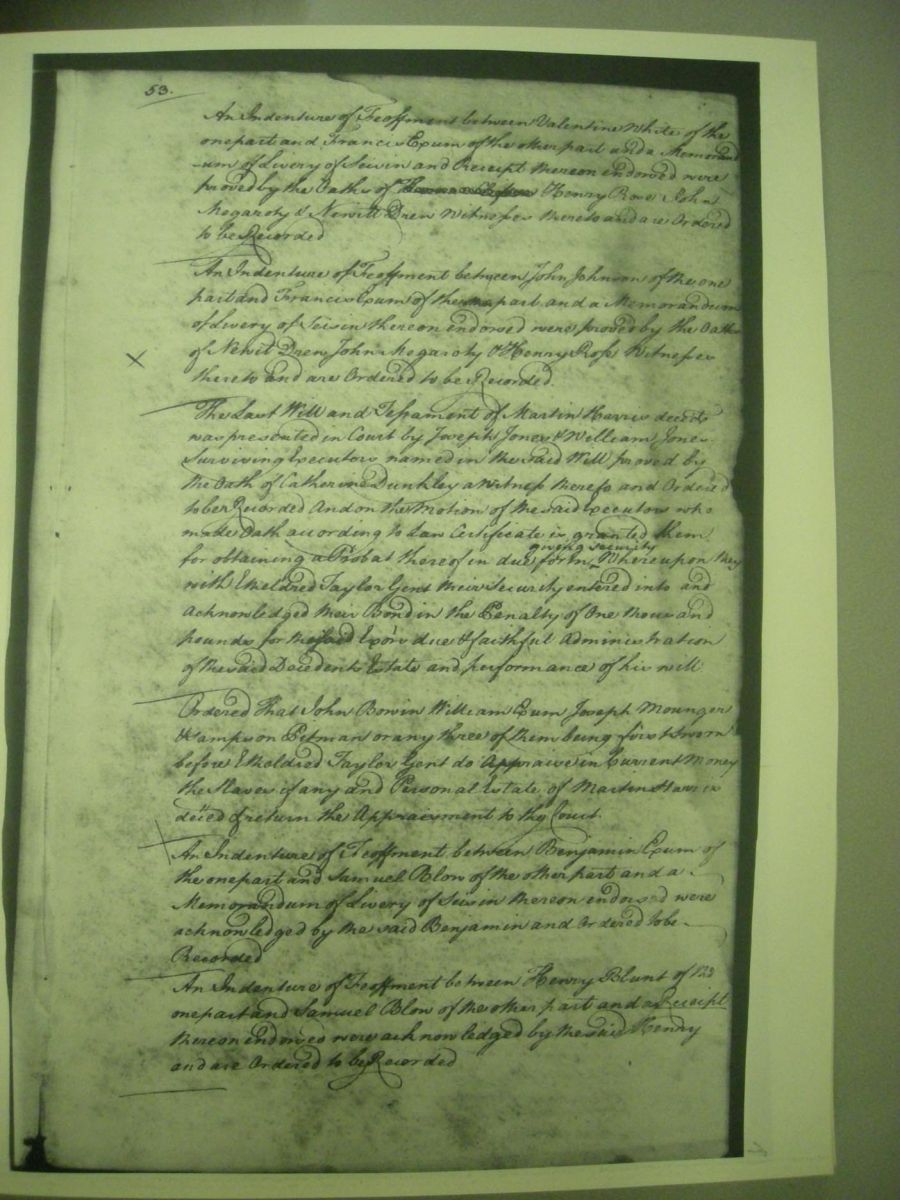 53.
An Indenture of Feoffment between Valentine White of the
one part and Francis Exum of the other part and a Memorand
um of Livery of Seisin and Receipt thereon endorsed were
proved by the Oaths of Henry Rose John
Megaroty & Newitt Drew Witnesses thereto and are Ordered
to be Recorded
An Indenture of Feoffment between John Johnson of the one
part and Francis Exum of the part and a Memorandum
of Livery of Seisin thereon endorsed were proved by the Oaths
of Newit Drew John Megaroty & Henry Rose Witnesses
thereto and are Ordered to be Recorded.
The Last Will and Testament of Martin Harris decd
was presented in Court by Joseph Jones & William Jones
Surviving Executors named in the said Will proved by
the Oath of Catherine Dunkley a Witness thereto and Ordered
to be Recorded And on the Motion of the said Executors who
made Oath according to Law Certificate is granted them
giving security
for obtaining a Probat thereof in due form Whereupon they
with Etheldred Taylor Gent their Security entered into and
acknowledged their Bond in the Penalty of One thousand
pounds for the said Exors due & faithful Administration
of the said Decedents Estate and performance of his will
Ordered That John Bowin William Exum Joseph Mounger
& Sampson Pitman or any three of them being first Sworn
before Etheldred Taylor Gent do Appraise in Current Money
the Slaves if any and Personal Estate of Martin Harris
deced & return the Appraisment to the Court.
An Indenture of Feoffment between Benjamin Exum of
the one part and Samuel Blow of the other part and a
Memorandum of Livery of Seisin thereon endorsed were
acknowledged by the said Benjamin and Ordered to be
Recorded
An Indenture of Feoffment between Henry Blunt of the
one part and Samuel Blow of the other part and a Receipt
thereon endorsed were acknowledged by the said Henry
and are Ordered to be Recorded